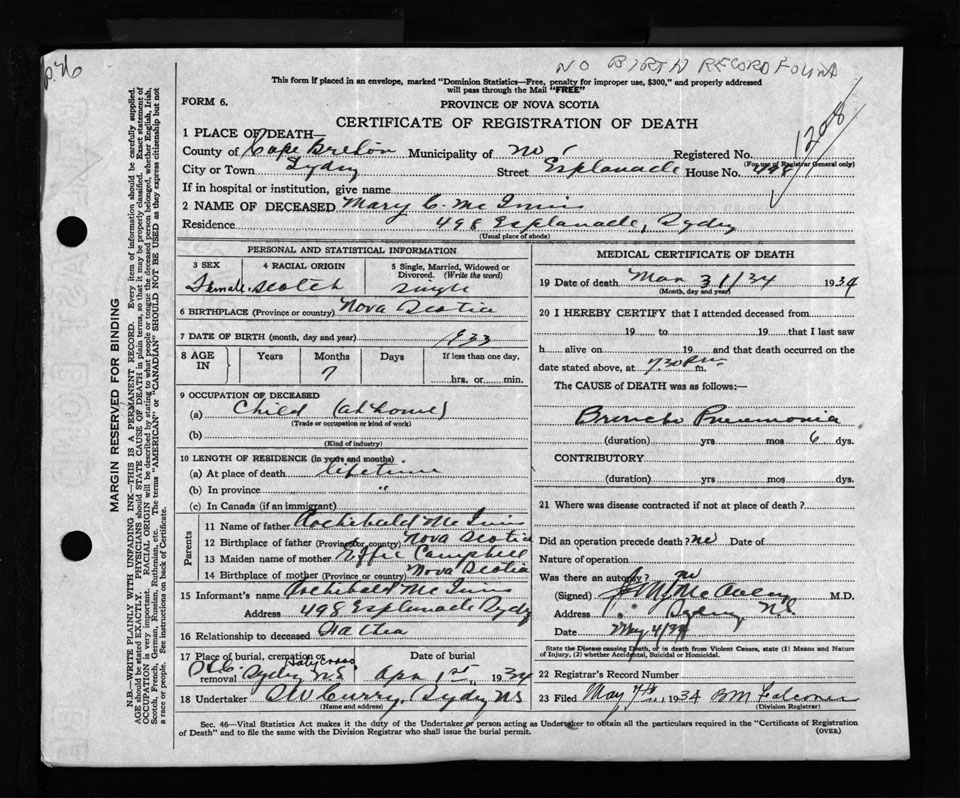 p.76
NO BIRTH RECORD FOUND
This form if placed in an envelope, marked "Dominion Statistics—Free, penalty for improper use, $300," and properly addressed
will pass through the Mail "FREE"
FORM 6.
PROVINCE OF NOVA SCOTIA
CERTIFICATE OF REGISTRATION OF DEATH
1208
1 PLACE OF DEATH—
County of Cape Breton Municipality of No 1 Registered No.
(For use of Registrar General only)
City or Town Sydney Street Esplanade House No. 498
If in hospital or institution, give name
2 NAME OF DECEASED Mary C. McInnis
Residence 498 Esplanade, Sydney
(Usual place of abode)
PERSONAL AND STATISTICAL INFORMATION
3 SEX 4 RACIAL ORIGIN 5 Single, Married, Widowed or
Divorced. (Write the word)
Female Scotch Single
6 BIRTHPLACE (Province or country) Nova Scotia
7 DATE OF BIRTH (month, day and year) 1933
8 AGE IN Years Months Days If less than one day.
7 hrs. or min.
9 OCCUPATION OF DECEASED
(a) Child (at home)
(Trade or occupation or kind of work)
(b)
(Kind of industry)
10 LENGTH OF RESIDENCE (in years and months)
(a) At place of death lifetime
(b) In province "
(c) In Canada (if an immigrant)
Parents
11 Name of father Archibald McInnis
12 Birthplace of father (Province or country) Nova Scotia
13 Maiden name of mother Effie Campbell
14 Birthplace of mother (Province or country) Nova Scotia
15 Informant's name Archibald McInnis
Address 498 Esplanade Sydney
16 Relationship to deceased Father
17 Place of burial, cremation or Date of burial
removal Holy Cross Sydney N.S. Apr 1st, 1934
18 Undertaker Curry, Sydney NS
(Name and address)
MEDICAL CERTIFICATE OF DEATH
19 Date of death Mar 31/34 1934
(Month, day and year)
20 I HEREBY CERTIFY that I attended deceased from
19 to 19 that I last saw
h alive on 19 and that death occurred on the
date stated above, at 7.30 P m.
The CAUSE OF DEATH was as follows:—
Broncho Pneumonia
(duration) yrs mos 6 dys.
CONTRIBUTORY
(duration) yrs mos dys.
21 Where was disease contracted if not at place of death?
Did an operation precede death? no Date of
Nature of operation
Was there an autopsy? no
(Signed) M.D.
Address " Sydney, N.S.
Date May 4/34
State the Disease causing Death, or in death from Violent Causes, state (1) Means and Nature
of Injury, (2) whether Accidental, Suicidal or Homicidal.
22 Registrar's Record Number
23 Filed May 7th, 1934 B M Falconer
(Division Registrar)
Sec. 46—Vital Statistics Act makes it the duty of the Undertaker or person acting as Undertaker to obtain all the particulars required in the "Certificate of Registration
of Death" and to file the same with the Division Registrar who shall issue the burial permit.
(OVER)
MARGIN RESERVED FOR BINDING
N.B.—WRITE PLAINLY WITH UNFADING INK—THIS IS A PERMANENT RECORD. Every item of information should be carefully supplied.
AGE should be stated EXACTLY. PHYSICIANS should STATE CAUSE OF DEATH in plain terms, so that it may be properly classified. Exact statement of
OCCUPATION is very important. RACIAL ORIGIN will be described by stating to what people or tongue the deceased person belonged, whether English, Irish,
Scotch, French, German, Russian, Ruthenian, etc. The terms "AMERICAN" or "CANADIAN" SHOULD NOT BE USED as they express citizenship but not
a race or people. See instructions on back of Certificate.